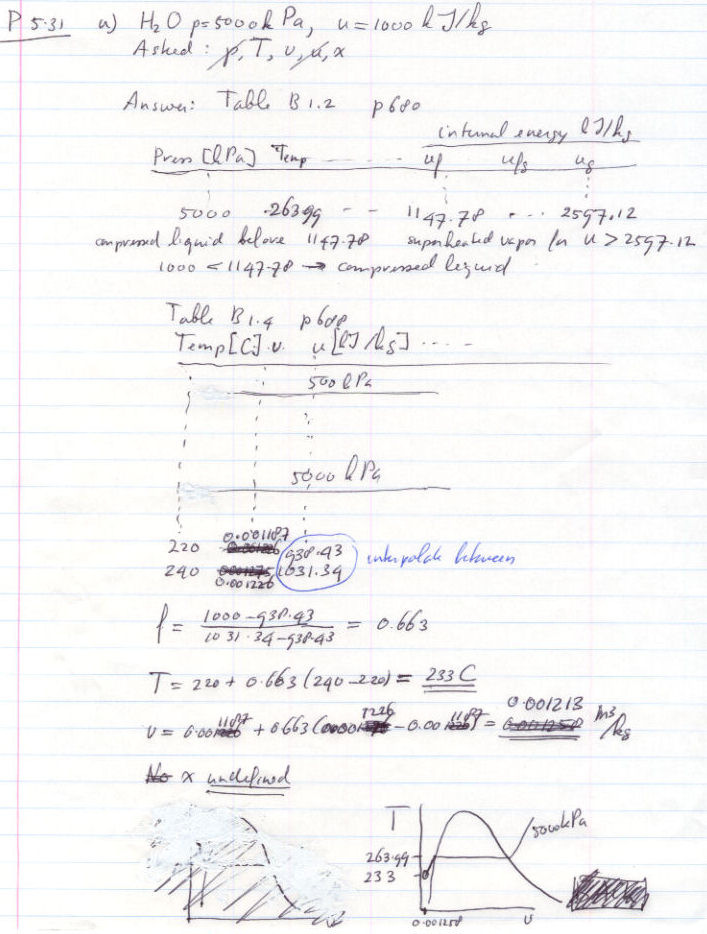 P 5.31 a) H2O p=5000 kPa, u=1000 kJ/kg
Asked: p, T, v, u, x
Answer: Table B 1.2 p680
internal energy kJ/kg
Press [kPa] Temp ------ uf ufg ug
5000 263.99 -- 1147.78 ... 2597.12
compressed liquid below 1147.78 superheated vapor for u > 2597.12
1000 < 1147.78 → compressed liquid
Table B 1.4 p688
Temp [C] v u [kJ/kg] ....
500 kPa
5000 kPa
0.001187
220 938.43 interpolate between
240 1031.34
0.001226
f = (1000 - 938.43) / (1031.34 - 938.43) = 0.663
T = 220 + 0.663 (240 - 220) = 233 C
0.001213
v = 0.001187 + 0.663 (0.001226 - 0.001187) = m3/kg
No x undefined
T
5000 kPa
263.99
233
0.001258 v